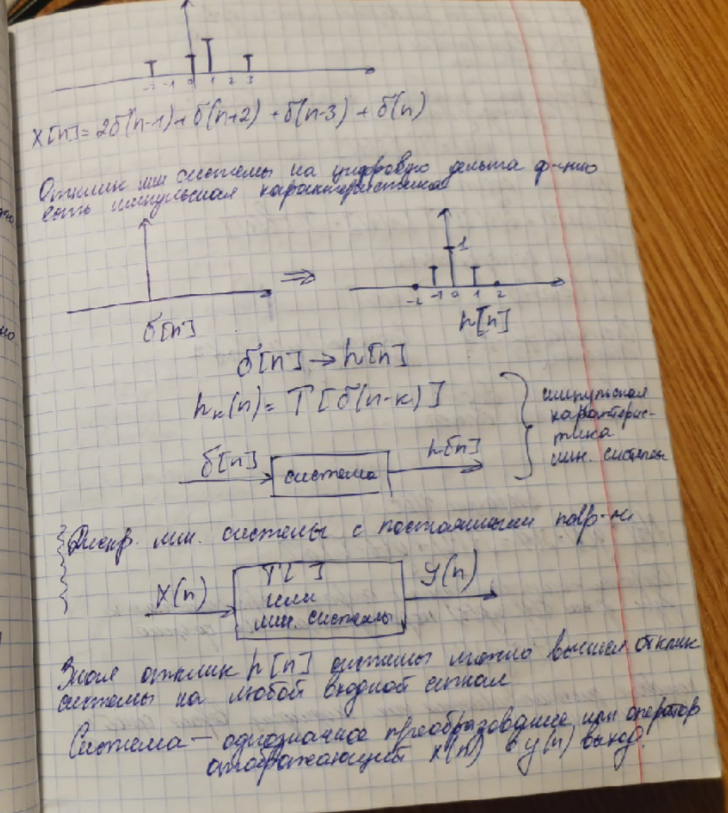 -2 -1 0 1 2 3
X[n] = 2δ(n-1) + δ(n+2) + δ(n-3) + δ(n)
Отклик лин системы на цифровую дельта ф-цию
есть импульсная характеристика
1
-2 -1 0 1 2
δ[n]
⇒
h[n]
δ[n] → h[n]
hк(n) = T[δ(n-к)]
импульсная
характерис-
тика
лин. системы
δ[n]
система
h[n]
Дискр. лин. системы с постоянными пар-ми
X(n)
T[ ]
или
лин. системы
y(n)
Зная отклик h[n] системы можно вычисл отклик
системы на любой входной сигнал
Система — однозначное преобразование или оператор
отображающий x(n) в y(n) выход.